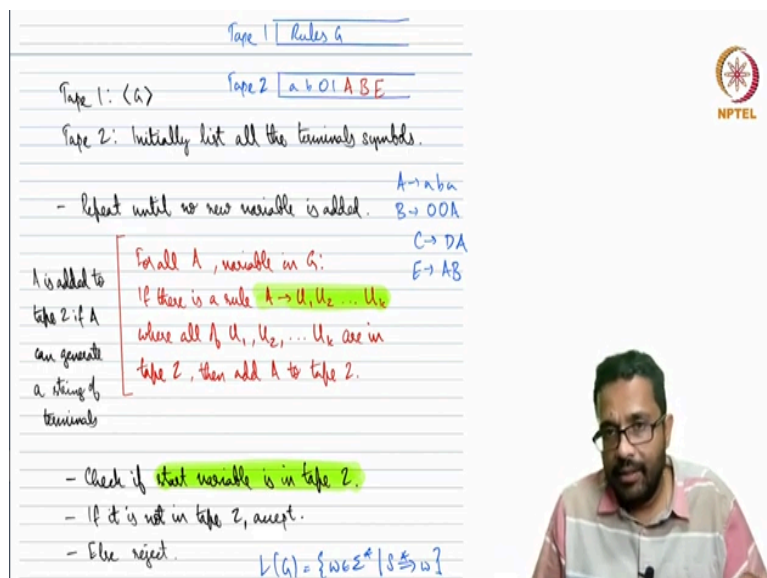 Tape 1 Rules G
Tape 2 a b 0 1 A B E
NPTEL
Tape 1: ⟨G⟩
Tape 2: Initially list all the terminals symbols.
- Repeat until no new variable is added.
A → a b a
B → 0 0 A
C → D A
E → A B
A is added to
tape 2 if A
can generate
a string of
terminals
For all A, variable in G:
If there is a rule A → U₁ U₂ ... Uₖ
where all of U₁, U₂, ... Uₖ are in
tape 2, then add A to tape 2.
- Check if start variable is in tape 2.
- If it is not in tape 2, accept.
- Else reject.
L(G) = {w ∈ Σ* | S ⇒* w}